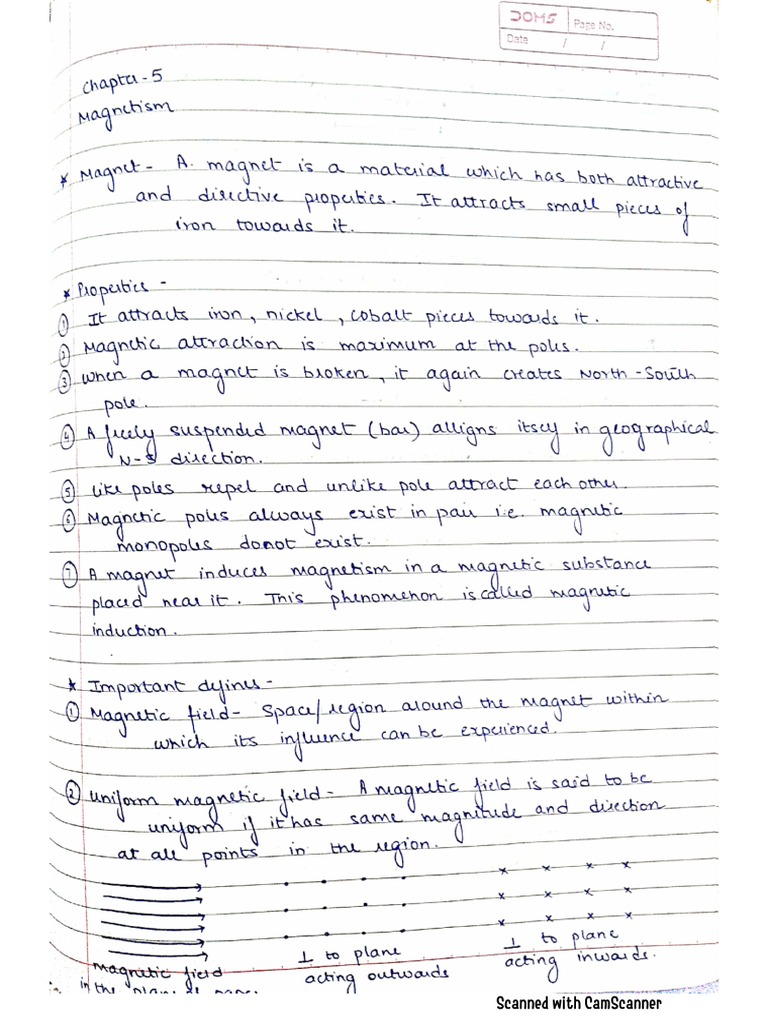 DOMS
Page No.
Date / /
Chapter-5
Magnetism
* Magnet - A. magnet is a material which has both attractive
and directive properties. It attracts small pieces of
iron towards it.
* Properties -
① It attracts iron, nickel, cobalt pieces towards it.
② Magnetic attraction is maximum at the poles.
③ when a magnet is broken, it again creates North-South
pole.
④ A freely suspended magnet (bar) alligns itself in geographical
N-S direction.
⑤ Like poles repel and unlike pole attract each other.
⑥ Magnetic poles always exist in pair i.e. magnetic
monopoles donot exist.
⑦ A magnet induces magnetism in a magnetic substance
placed near it. This phenomenon is called magnetic
induction.
* Important defines -
① Magnetic field - Space/region around the magnet within
which its influence can be experienced.
② Uniform magnetic field - A magnetic field is said to be
uniform if it has same magnitude and direction
at all points in the region.
magnetic field
in the plane of
⊥ to plane
acting outwards
⊥ to plane
acting inwards.
Scanned with CamScanner